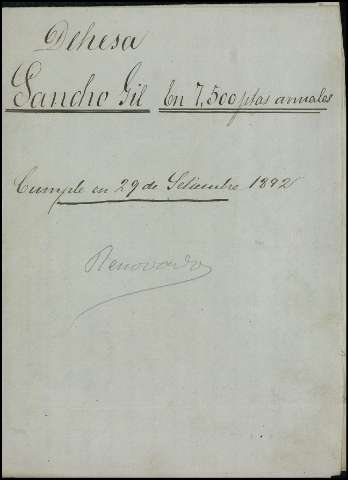 Dehesa
Sancho Gil En 7,500 ptas anuales
Cumple en 29 de Setiembre 1892
Renovado